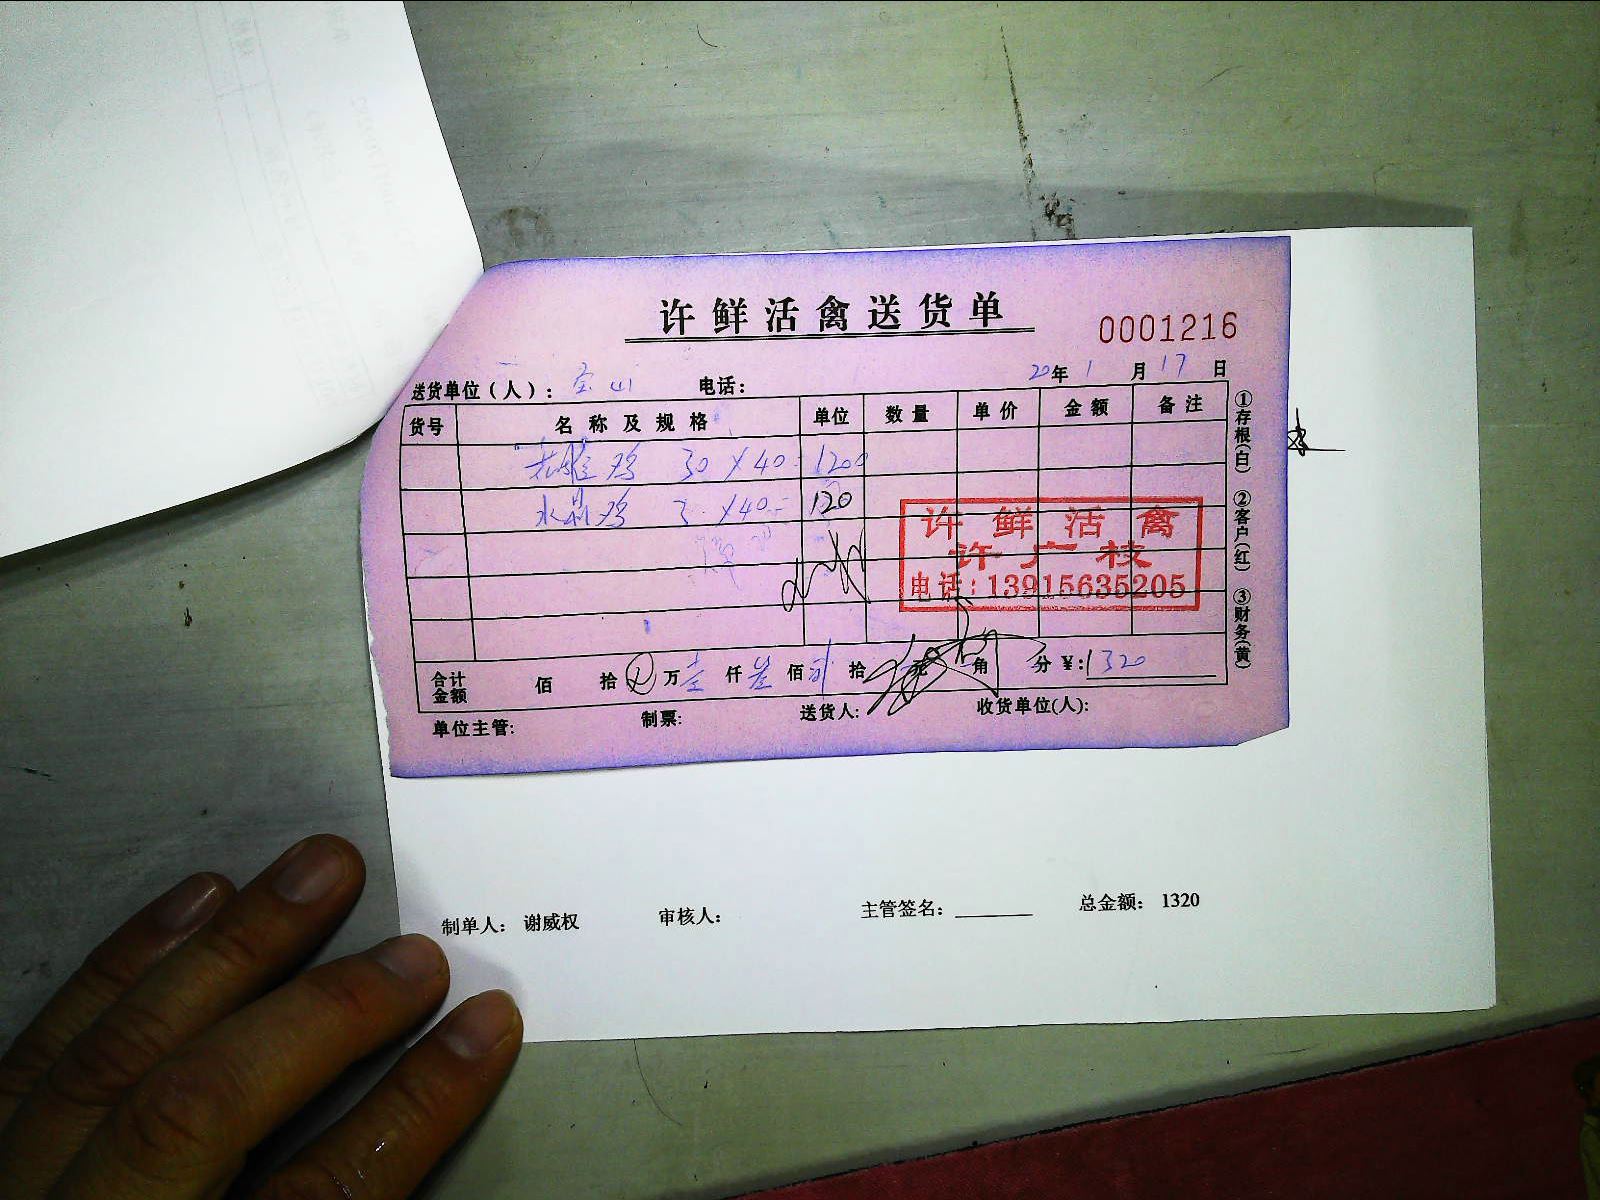 许鲜活禽送货单
0001216
送货单位(人): 电话: 20年1月17日
货号 名称及规格 单位 数量 单价 金额 备注
鸡 30×40=1200
水晶鸡 3×40=120
许鲜活禽
许广枝
电话:13915635205
合计金额 佰 拾 万壹仟叁佰贰拾 元 角 分 ¥:1320
单位主管: 制票: 送货人: 收货单位(人):
①存根(白) ②客户(红) ③财务(黄)
制单人: 谢威权 审核人: 主管签名: 总金额: 1320